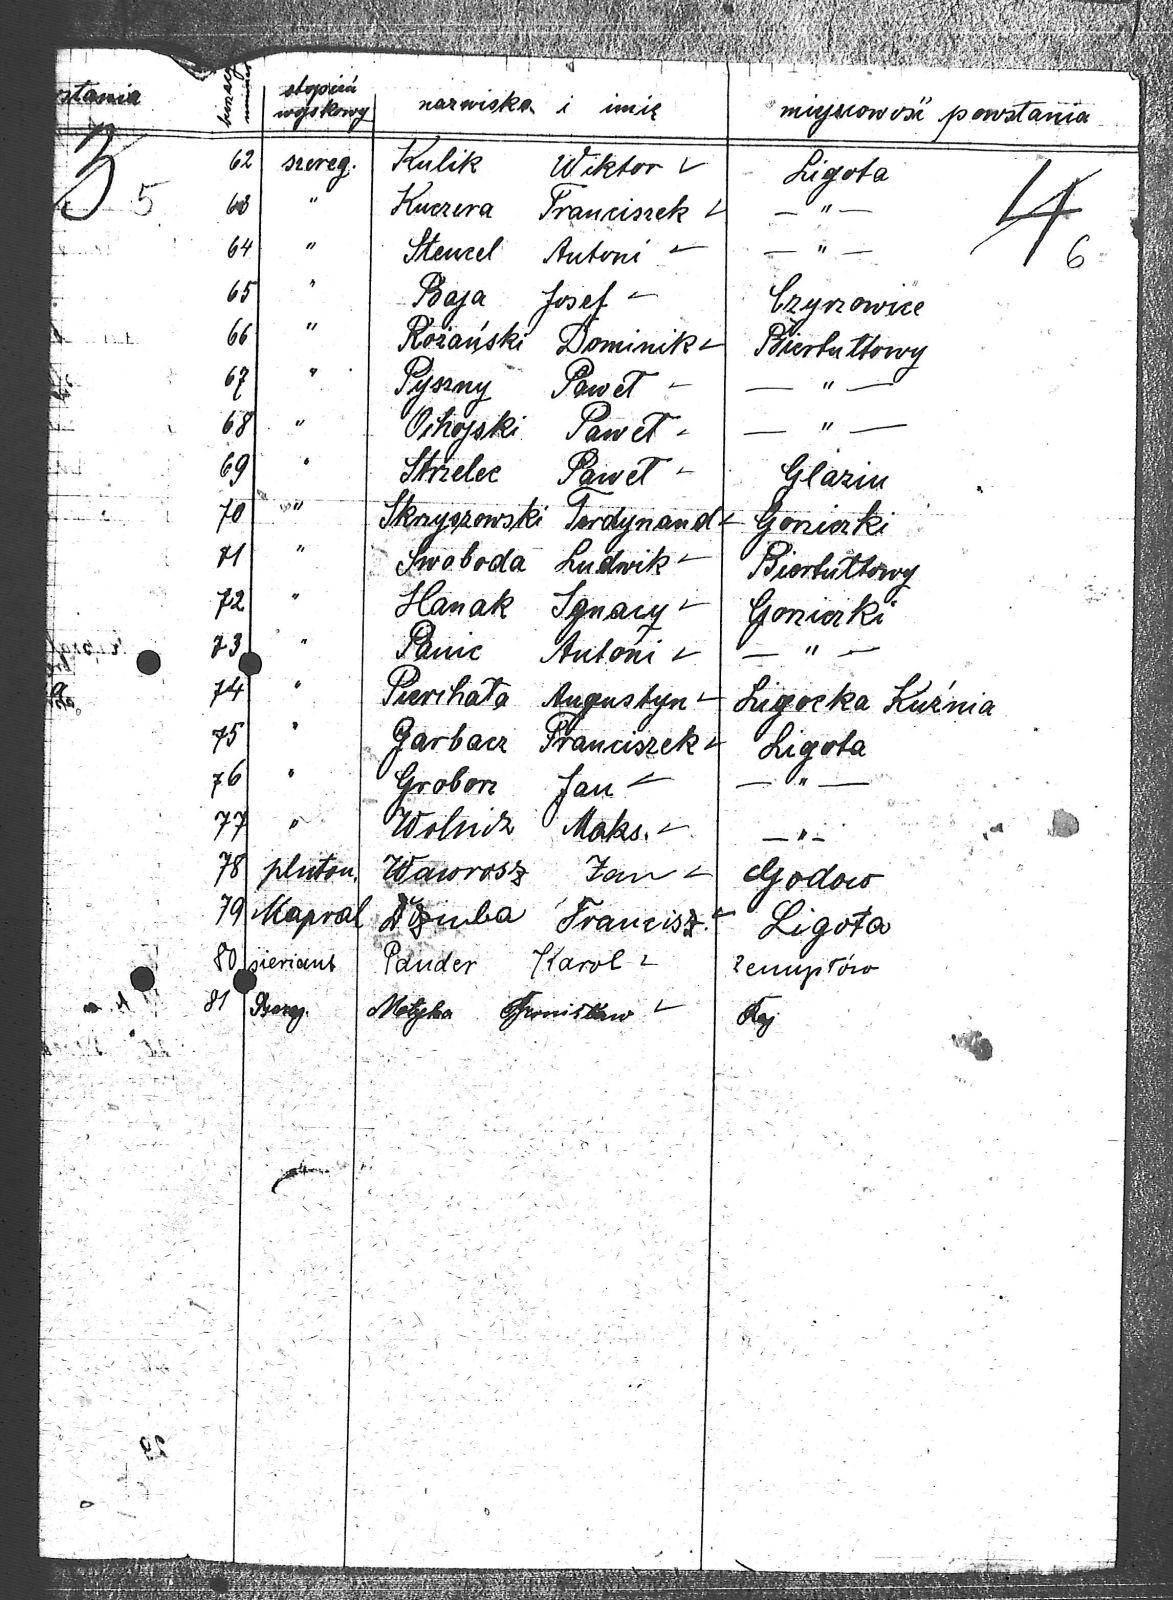 stania stopień wojskowy nazwiska i imię miejscowość powstania
3 5
4 6
62 szereg. Kulik Wiktor Ligota
63 " Kuczera Franciszek — " —
64 " Stencel Antoni — " —
65 " Baja Josef Czyrzowice
66 " Rożański Dominik Biertułtowy
67 " Pyszny Paweł — " —
68 " Ochojski Paweł — " —
69 " Strzelec Paweł Glaziu
70 " Skrzyszowski Ferdynand Gorziczki
71 " Swoboda Ludwik Biertułtowy
72 " Hanak Ignacy Gorziczki
73 " Panic Antoni — " —
74 " Pierchała Augustyn Ligocka Kuźnia
75 " Garbacz Franciszek Ligota
76 " Groborz Jan — " —
77 " Wolnik Maks. — " —
78 pluton. Wawrosz Jan Godow
79 Kapral Dziuba Francisz. Ligota
80 sieriant Pander Karol
81 Motyka